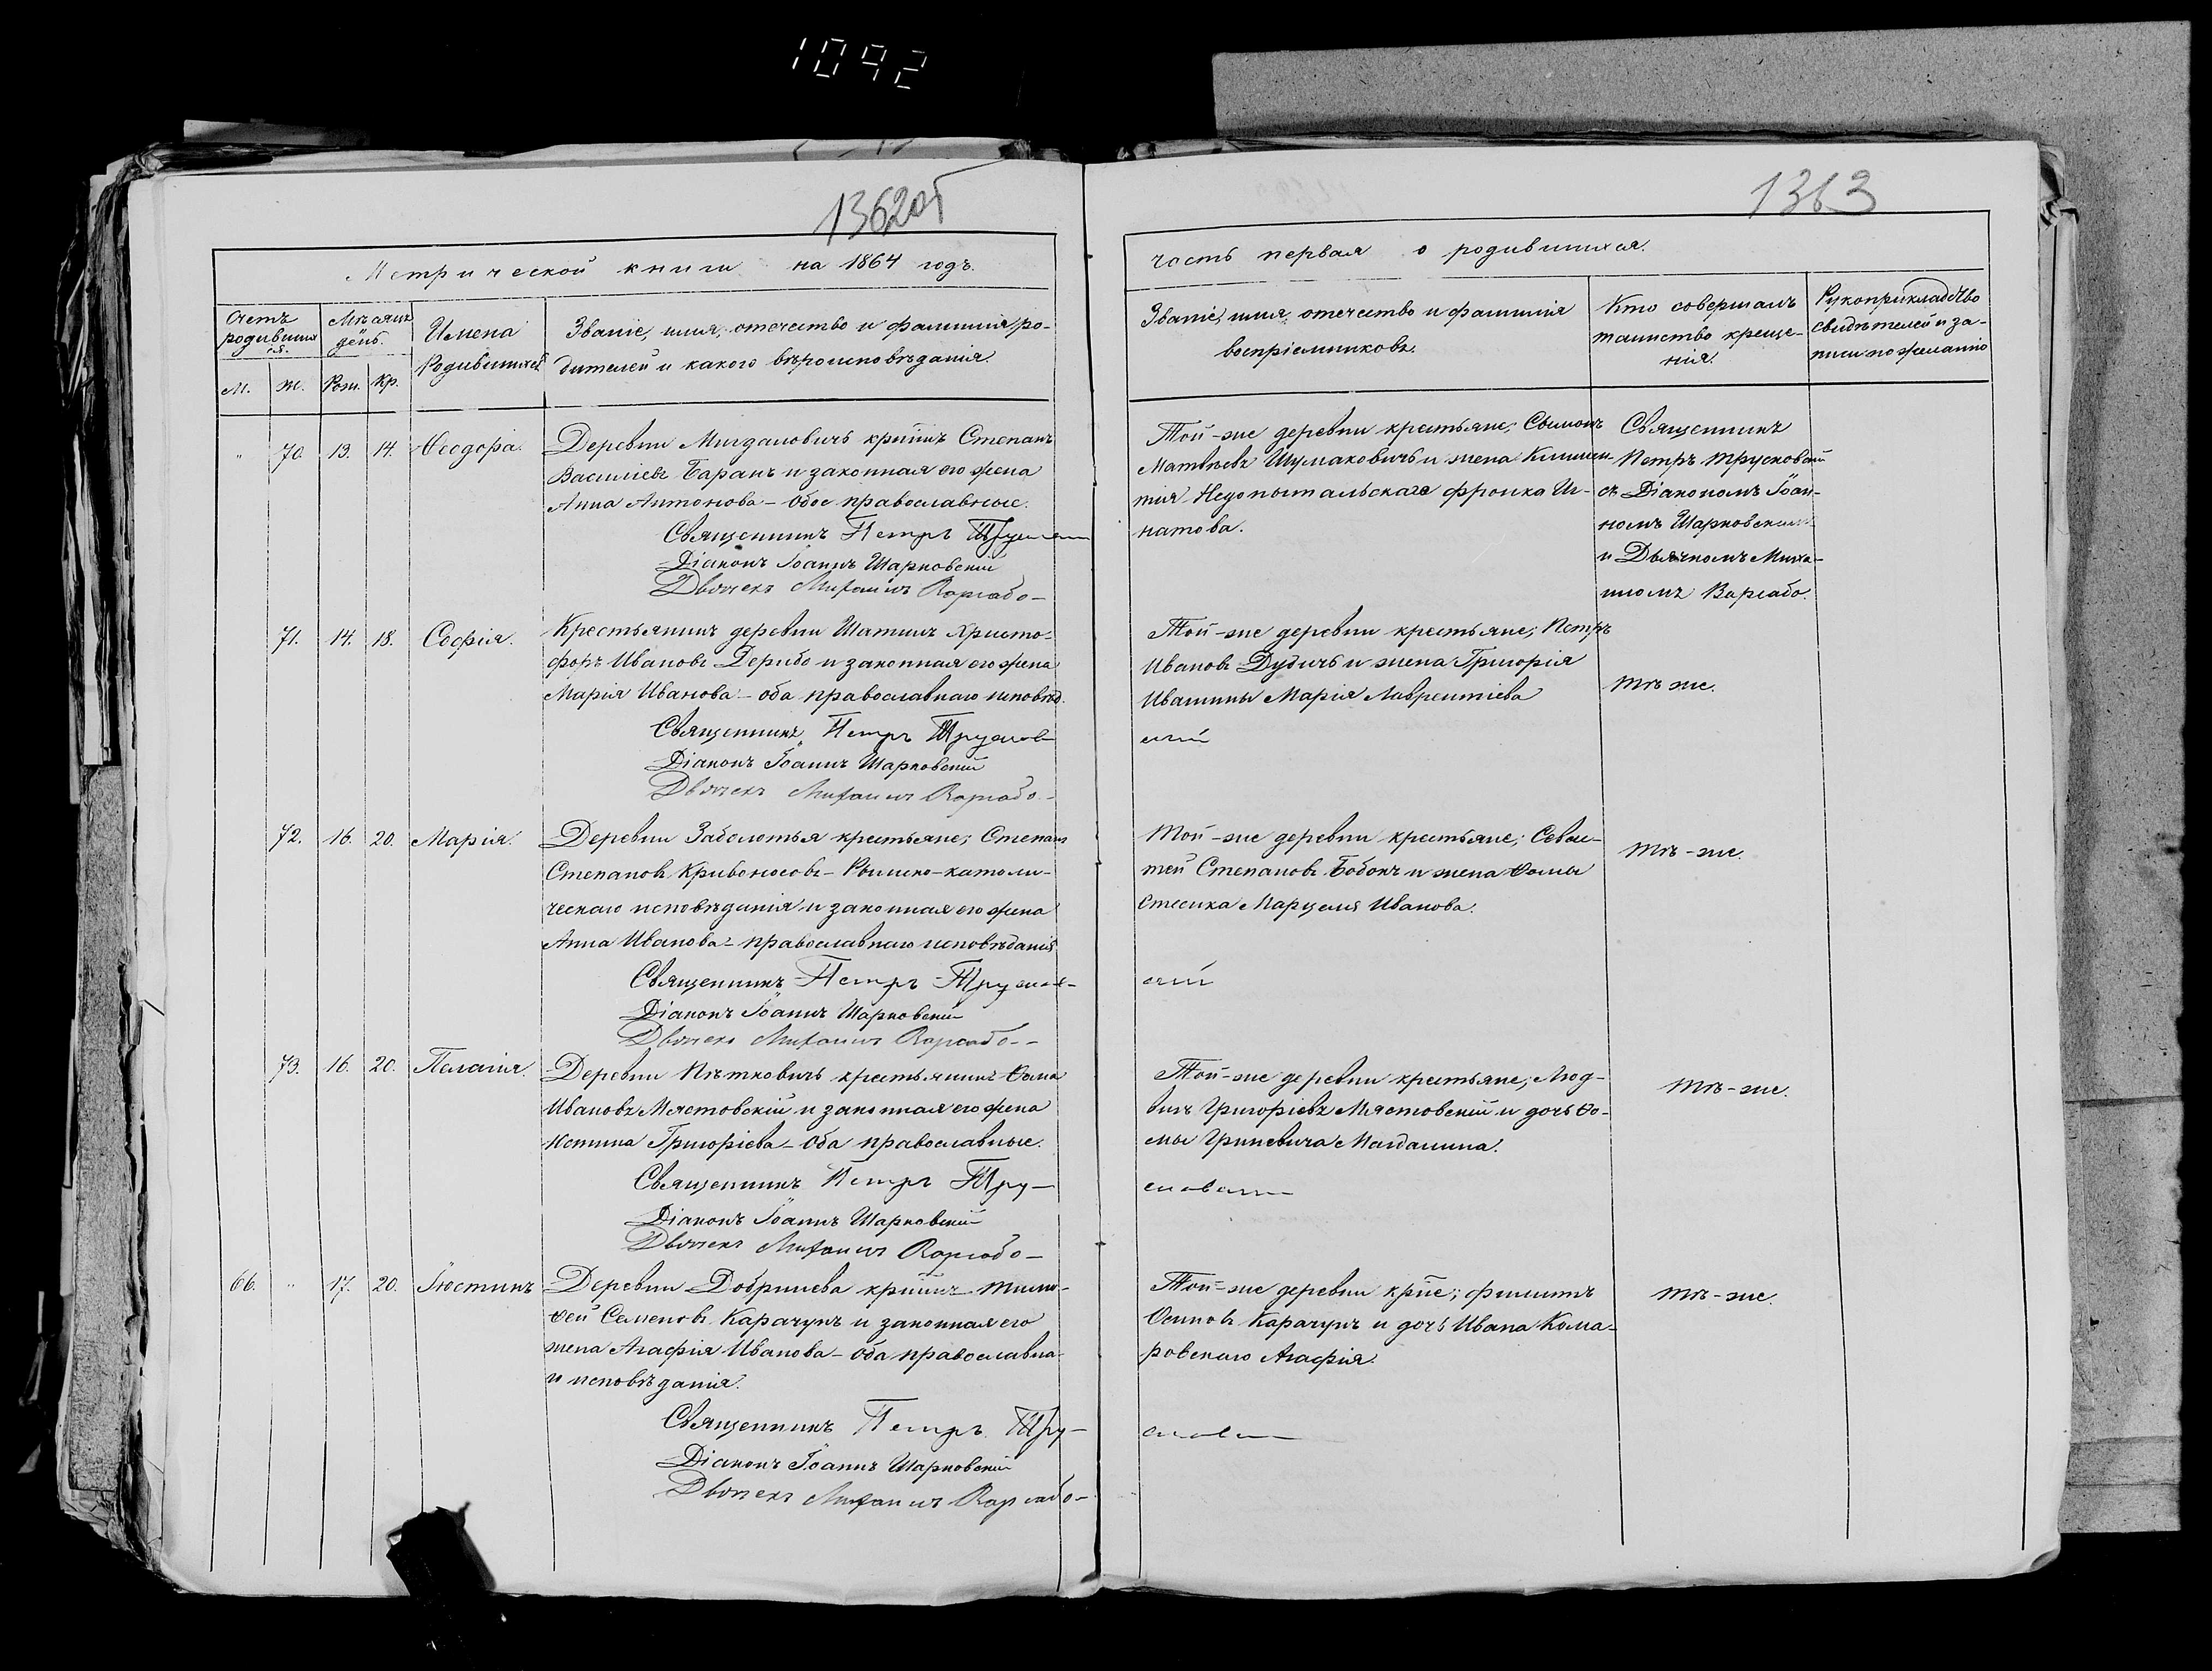 1092
1362об
1363
Метрической книги на 1864 годъ.
часть первая о родившихся.
Счетъ родившихся.
Мѣсяцъ день.
Имена Родившихся
Званіе, имя, отчество и фамилія ро-
дителей и какого вѣроисповѣданія.
М. Ж. Рож. Кр.
Званіе, имя, отчество и фамилія
воспріемниковъ.
Кто совершалъ
таинство креще-
нія.
Рукоприкладство
свидѣтелей и за-
писи по желанію
" 70. 13. 14. Ѳеодора.
Деревни Мигдаловичь крнинъ Степанъ
Василіевъ Баранъ и законная его жена
Анна Антонова – обое православные.
Священникъ Петръ
Діаконъ Іоаннъ Шарковскій
Дьячекъ Михаилъ Варгабо-
Той-же деревни крестьяне; Симонъ
Матвѣевъ Шумаковичь и жена
Фронка Иг-
натова.
Священникъ
Петръ Трусковскій
съ Діакономъ Іоан-
номъ Шарковскимъ
и Дьячкомъ Миха-
иломъ Варгабо.
71. 14. 18. Софія.
Крестьянинъ деревни Шатилъ Христо-
форъ Ивановъ Дерибо и законная его жена
Марія Иванова – оба православнаго исповѣд.
Священникъ Петръ Трусков
Діаконъ Іоаннъ Шарковскій
Дьячекъ Михаилъ Варгабо-
Той-же деревни крестьяне; Петръ
Ивановъ Дудичь и жена Григорія
Ивашины Марія Лаврентіева
скій
тѣ же.
72. 16. 20. Марія.
Деревни Заболотья крестьяне; Степанъ
Степановъ Кривоносовъ – Римско-католи-
ческаго исповѣданія и законная его жена
Анна Иванова – православнаго исповѣданія
Священникъ Петръ Трусков-
Діаконъ Іоаннъ Шарковскій
Дьячекъ Михаилъ Варгабо--
Той-же деревни крестьяне; Севас-
тей Степановъ Бобокъ и жена Ѳомы
Стесика Марцеля Иванова.
скій
тѣ-же.
73. 16. 20. Пелагія.
Деревни Пѣтковичь крестьянинъ Ѳома
Ивановъ Мястовскій и законная его жена
Юстина Григоріева – оба православные.
Священникъ Петръ Тру-
Діаконъ Іоаннъ Шарковскій
Дьячекъ Михаилъ Варгабо-
Той-же деревни крестьяне; Люд-
вигъ Григоріевъ Мястовскій и дочь Ѳо-
мы Гриневича Магдалина.
сковскій
тѣ-же.
66. " 17. 20. Іюстинъ
Деревни Добринева крнинъ Тимо-
ѳей Семеновъ Карачунъ и законная его
жена Агафія Иванова – оба православна-
го исповѣданія.
Священникъ Петръ Тру-
Діаконъ Іоаннъ Шарковскій
Дьячекъ Михаилъ Варгабо-
Той-же деревни крне; Филиппъ
Осиповъ Карачунъ и дочь Ивана Кома-
ровскаго Агафія.
сковскій
тѣ-же.